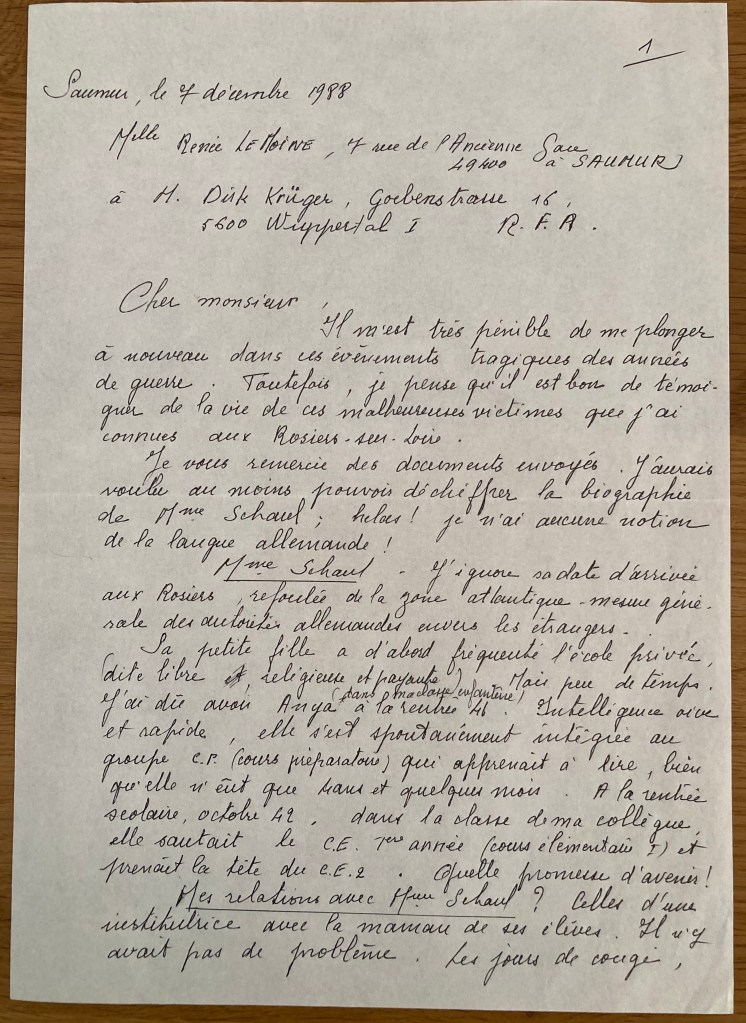 1
Saumur, le 7 décembre 1988
Melle Renée LEMOINE, 7 rue de l'Ancienne
49400 à SAUMUR
à M. Dirk Krüger, Goebenstrasse 16,
5600 Wuppertal I R.F.A.
Cher monsieur,
Il m'est très pénible de me plonger
à nouveau dans ces évènements tragiques des années
de guerre. Toutefois, je pense qu'il est bon de témoi-
gner de la vie de ces malheureuses victimes que j'ai
connues aux Rosiers-sur-Loire.
Je vous remercie des documents envoyés. J'aurais
voulu au moins pouvoir déchiffrer la biographie
de Mme Schaul ; hélas ! je n'ai aucune notion
de la langue allemande !
Mme Schaul - J'ignore sa date d'arrivée
aux Rosiers, refoulée de la zone atlantique - mesure géné-
rale des autorités allemandes envers les étrangers -
Sa petite fille a d'abord fréquenté l'école privée,
(dite libre religieuse et payante) Mais peu de temps.
(dans ma classe enfantine)
J'ai dû avoir Anya à la rentrée . Intelligence vive
et rapide, elle s'est spontanément intégrée au
groupe C.P. (cours préparatoire) qui apprenait à lire, bien
qu'elle n'eût que 4ans et quelques mois. A la rentrée
scolaire, octobre 42, dans la classe de ma collègue,
elle sautait le C.E. 1ère année (cours élémentaire I) et
prenait la tête du C.E.2. Quelle promesse d'avenir !
Mes relations avec Mme Schaul ? Celles d'une
institutrice avec la maman de ses élèves. Il n'y
avait pas de problème. Les jours de congé,